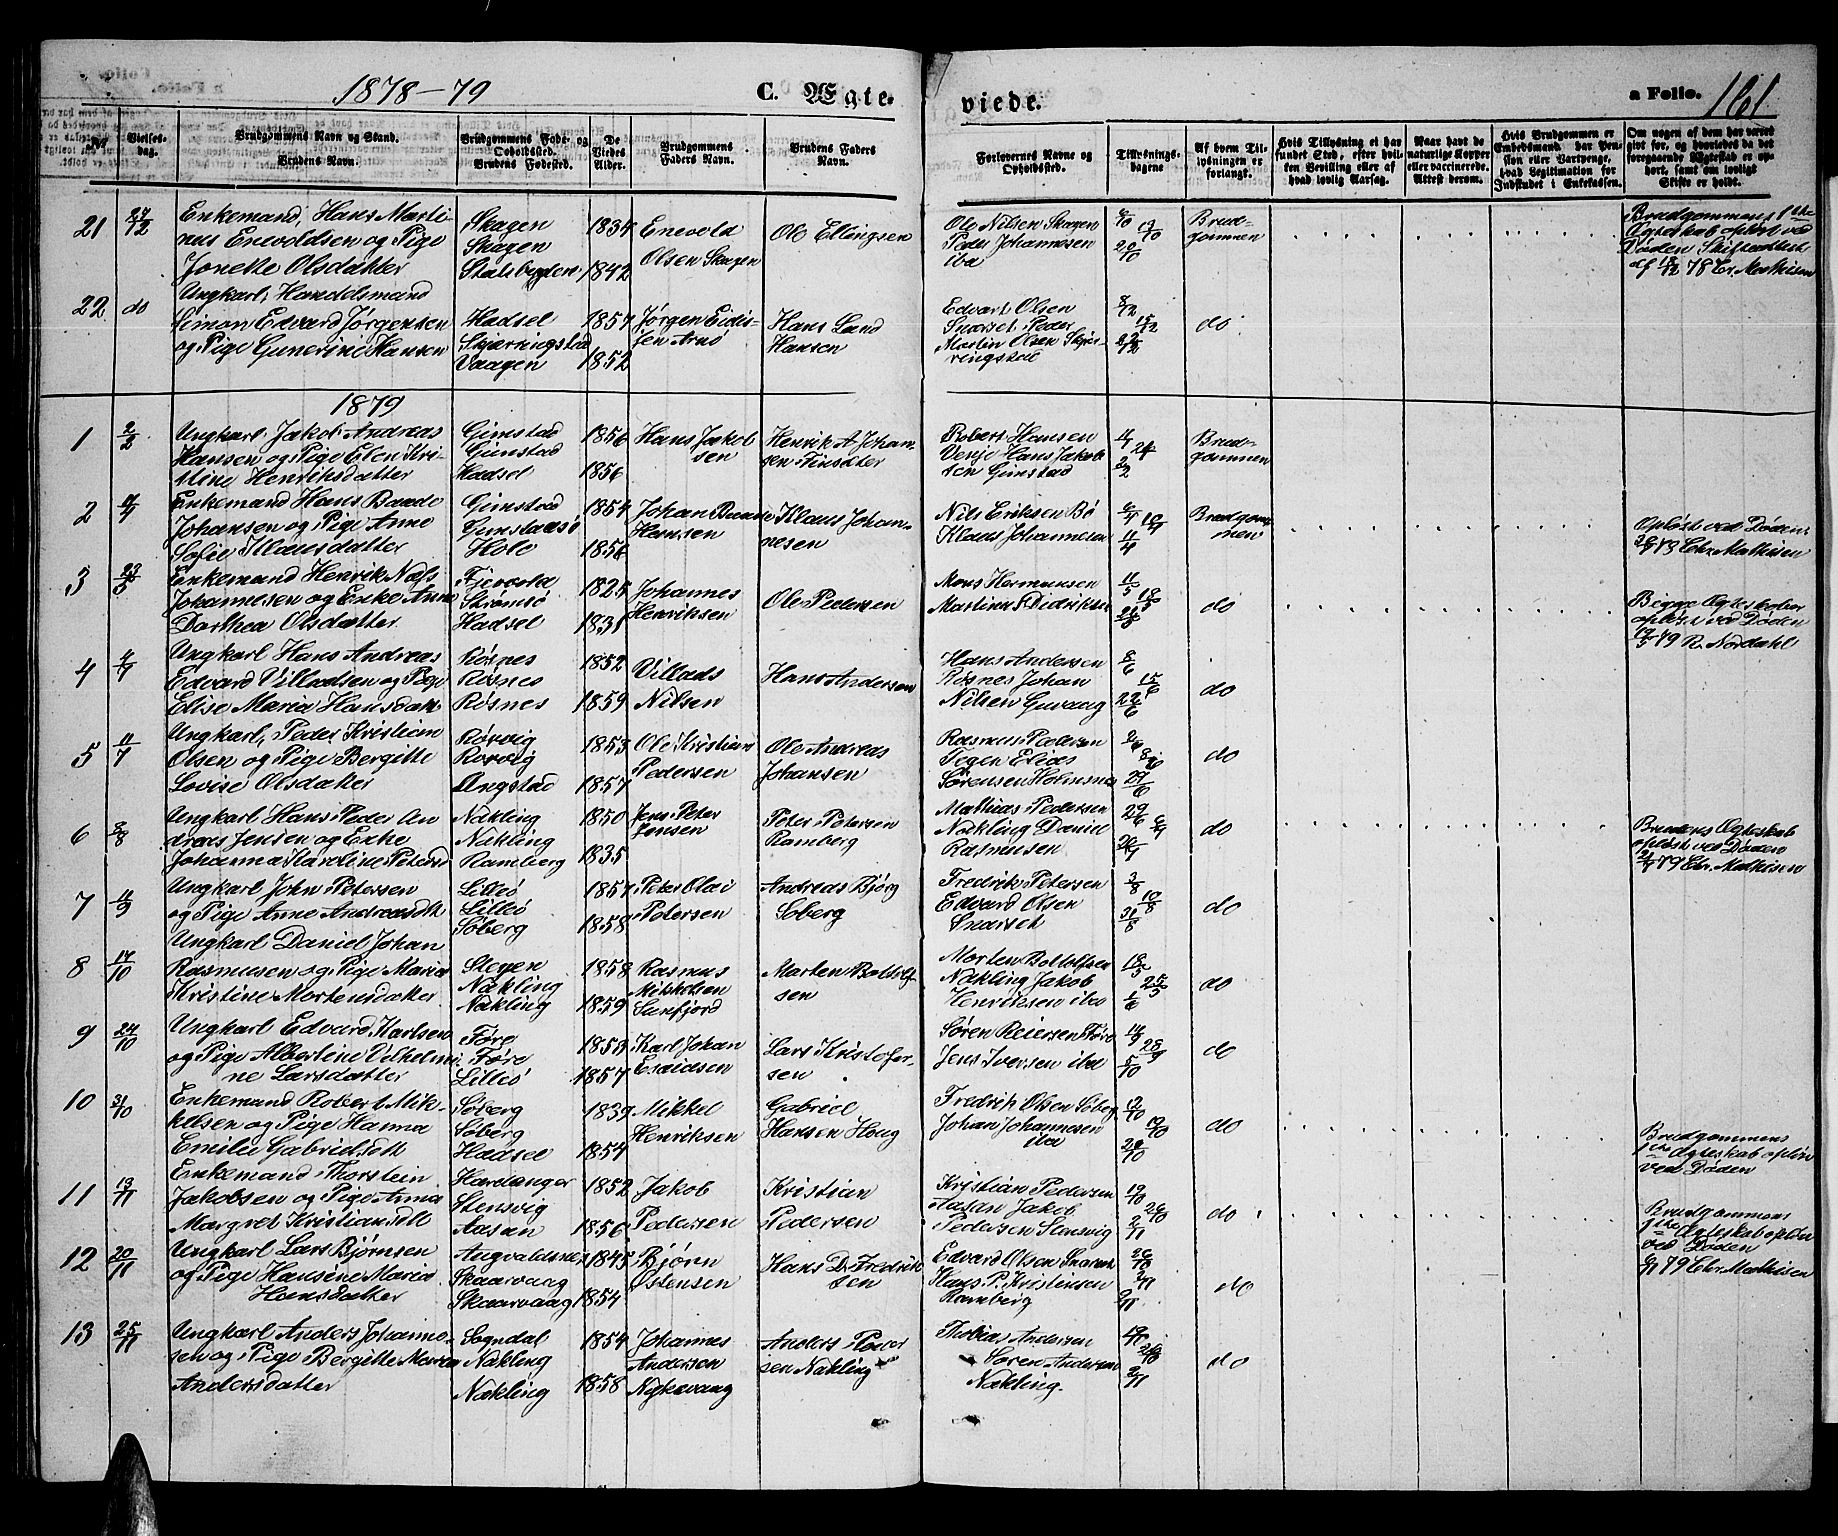 1878-79
C. Ægte-
viede.
a Folio. 161
№
Vielses-
dag.
Brudgommens Navn og Stand.
Brudens Navn.
Brudgommens Føde- og
Opholdssted.
Brudens Fødested.
De
Viedes
Alder.
Brudgommens
Faders Navn.
Brudens Faders
Navn.
Forlovernes Navne og
Opholdssted.
Tillysnings-
dagene
Af hvem Til-
lysningen er
forlangt.
Hvis Tillysning ei har
fundet Sted, efter hvil-
ken Bevilling eller af
hvad lovlig Aarsag.
Naar havt de
naturlige Kopper
eller vaccinerede.
Attest derom.
Hvis Brudgommen er
Embedsmand, har Pen-
sion eller Vartpenge,
hvad Legitimation for
Indskudet i Enkekassen.
Om nogen af dem har været
gift før, og hvorledes da det
foregaaende Ægteskab er op-
hørt, samt om lovligt
Skifte er holdt.
21 27/12
Enkemand, Hans Marti-
nus Enevoldsen og Pige
Jonette Olsdatter
Skagen
Skagen
Stalsbygden
1834
1842
Enevold
Olsen Skagen
Ole Ellingsen
Ole Nilsen Skagen
Peder Johannesen
iba
6/10 13/10
20/10
Brud-
gommen
Brudgommens 1ste
Ægteskab opløst ved
Døden Skifteattest
af 13/12 78 Chr. Mathisen
22 do
Ungkarl, Handelsmand
Simon Edvard Jørgensen
og Pige Gunerine Hansen
Hadsel
Skjærringstad
Vaagen
1857
1852
Jørgen Eidis-
sen Arnø
Hans Lund
Hansen
Edvart Olsen
Snarset Peder
Martin Olsen Skjær-
ringstad
8/12
15/12
22/12
do
1879
1 2/2
Ungkarl, Jakob Andreas
Hansen og Pige Elen Kri-
stine Henriksdatter
Gimstad
Gimstad
Hadsel
1856
1856
Hans Jakob
sen
Henrik A Johan-
sen
Robert Hansen
Hans Jakob
sen Gimstad
Brud-
gommen
2 17/4
Enkemand Hans Baade
Johansen og Pige Anne
Sofie Klausdatter
Gimstad
Gimstadsø
Hole
1854
1856
Johan Baade
Hansen
Klaus Johan-
nesen
Nils Eriksen Bø
Klaus Johannesen
6/4
11/4
Brudgom-
men
Opløst ved Døden
Chr. Mathisen
3 23/5
Enkemand Henrik Næss
Johannesen og Enke Anne
Dorthea Olsdatter
Fjevold
Strømsø
Hadsel
1825
1831
Johannes
Henriksen
Ole Pedersen
Mons Hermansen
Martinus Didriksen
11/5
18/5
do
Begge Ægteskaber
opløst ved Døden
79 R. Nordahl
4
Ungkarl Hans Andreas
Edvard Villadsen og Pige
Elise Maria Hansdatr
Røsnes
Røsnes
Røsnes
1852
1859
Villads
Nilsen
Hans Andersen
Hans Andersen
Røsnes Johan
Nilsen Guvaag
8/6
15/6
22/6
do
5 11/7
Ungkarl, Peder Kristian
Olsen og Pige Bergitte
Lovise Olsdatter
Rørvig
Rørvig
Ongstad
1853
1857
Ole Kristian
Pedersen
Ole Andreas
Johansen
Rasmus Pedersen
Tegen Elias
Sørensen Holmsnes
29/6
do
6 8/8
Ungkarl Hans Peder An
dreas Jensen og Enke
Johanna Karoline Petersd
Nøkling
Nøkling
Ramberg
1850
1835
Jens Peter
Jensen
Peter Petersen
Ramberg
Mathias Pedersen
Nøkling Daniel
Rasmusen
29/6
do
Brudens Ægteskab
opløst ved Døden
79 Chr. Mathisen
7 11/9
Ungkarl John Petersen
og Pige Anne Andreasdtt
Lilleø
Lilleø
Søberg
1857
1858
Peter Olai
Petersen
Andreas Bjørg
Søberg
Fredrik Petersen
Edvard Olsen
Snarset
3/8
10/8
31/8
do
8 17/10
Ungkarl Daniel Johan
Rasmusen og Pige Maria
Kristine Mortensdatter
Stegen
Nøkling
Nøkling
1858
1859
Rasmus
Mikkelsen
Sunfjord
Morten Bottolf-
sen
Morten Bottolfsen
Nøkling Jakob
Henriksen iba
18/5
25/5
1/6
do
9 24/10
Ungkarl Edvard Karlsen
og Pige Albertine Vilhelmi-
ne Larsdatter
Føre
Føre
Lilleø
1853
1857
Karl Johan
Esaidsen
Lars Kristofer-
sen
Søren Reiersen Føre
Jens Iversen iba
14/9
28/9
5/10
do
10 31/10
Enkemand Robert Mik-
kelsen og Pige Hanna
Emilie Gabrielsdtt
Søberg
Søberg
Hadsel
1839
1854
Mikkel
Henriksen
Gabriel
Hansen Houg
Fredrik Olsen Søberg
Johan Johannesen
iba
12/10
19/10
26/10
do
Brudgommens
1ste Ægteskab opløst
ved Døden
11 13/11
Enkemand Thorstein
Jakobsen og Pige Anna
Margret Kristiansdtt
Hardanger
Stensvig
Aasan
1852
1856
Jakob
Pedersen
Kristian
Pedersen
Kristian Pedersen
Aasan Jakob
Pedersen Stensvig
19/10
26/10
2/11
do
Brudgommens
1ste Ægteskab opløst
ved Døden
79 Chr. Mathisen
12 20/11
Ungkarl Lars Bjørnsen
og Pige Hansine Maria
Hansdatter
Augvaldsnes
Skaarvaag
Skaarvaag
1845
1854
Bjørn
Østensen
Hans D. Fredrik
sen
Edvard Olsen Snarset
Hans P. Kristensen
Ramberg
26/10
2/11
9/11
do
13 25/11
Ungkarl Anders Johanne-
sen og Pige Bergitte Maria
Andersdatter
Sogndal
Nøkling
Nøkling
1854
1858
Johannes
Andersen
Nykvaag
Anders Peder
sen Nøkling
Thobias Andersen
Søren Andersen
Nøkling.
19/10
26/10
2/11
do